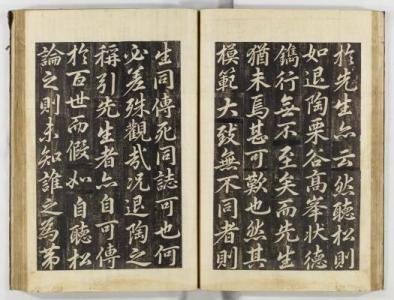 於先生亦云然聽松則
如退陶栗谷高峯狀德
鐫行無不至矣而先生
猶未焉甚可歎也然其
模範大致無不同者則
生同傳死同誌可也何
必差殊觀哉况退陶之
稱引先生者亦自可傳
於百世而假如自聽松
論之則未知誰之為第